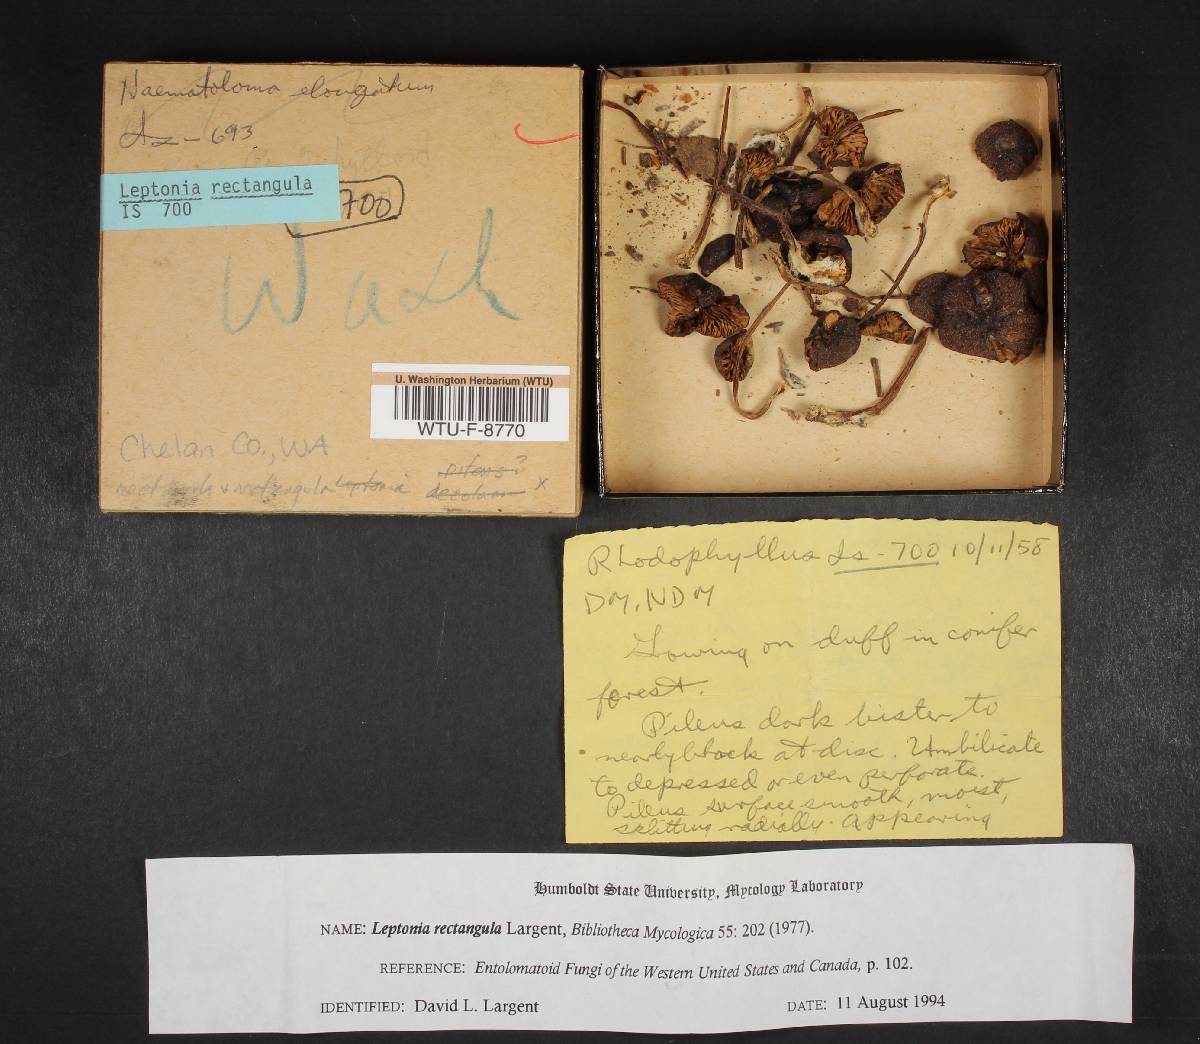 Naematoloma elongatum
Is-693
Leptonia rectangula
IS 700
700
Wash
U. Washington Herbarium (WTU)
WTU-F-8770
Chelan Co., WA
rectangula Leptonia
decolorans X
Rhodophyllus Is-700 10/11/58
DM, NDM
Growing on duff in conifer
forest.
Pileus dark bister to
nearly black at disc. Umbilicate
to depressed or even perforate.
Pileus surface smooth, moist,
splitting radially. Appearing
Humboldt State University, Mycology Laboratory
NAME: Leptonia rectangula Largent, Bibliotheca Mycologica 55: 202 (1977).
REFERENCE: Entolomatoid Fungi of the Western United States and Canada, p. 102.
IDENTIFIED: David L. Largent
DATE: 11 August 1994